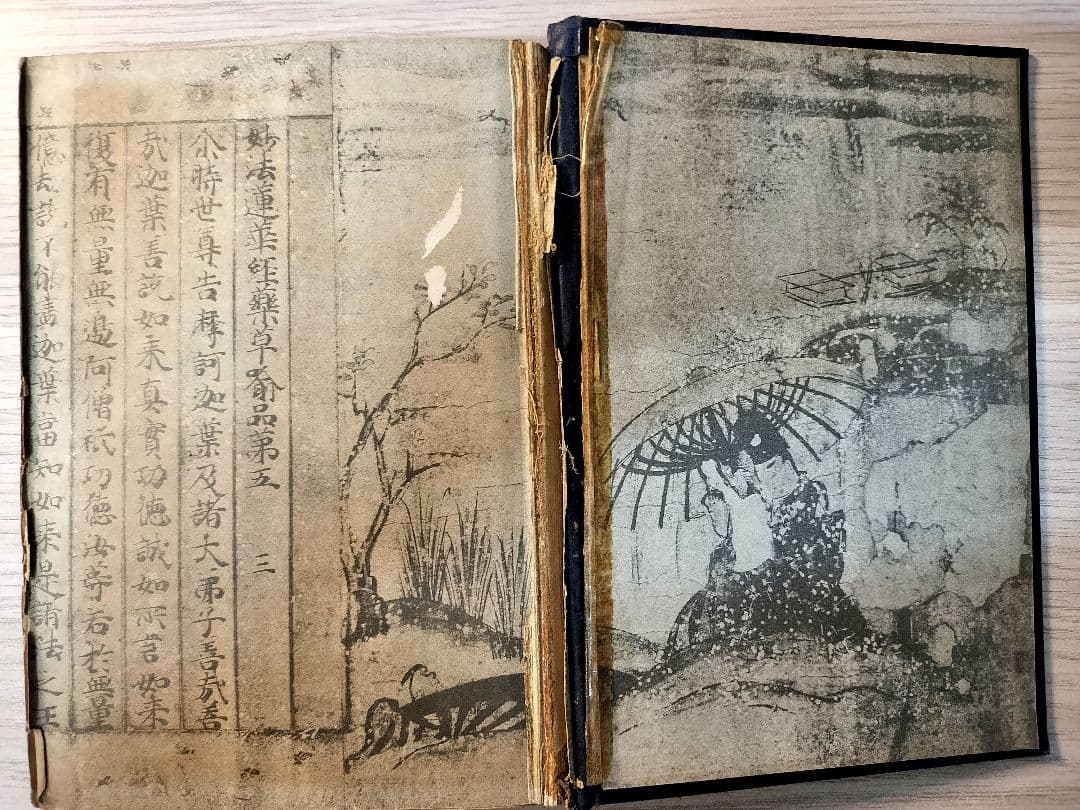 妙法蓮華経藥草喩品第五　三
尒時世尊告摩訶迦葉及諸大弟子善㢤善
㢤迦葉善説如来真實功徳誠如所言如来
復有無量無邉阿僧祇功徳汝等若於無量
億劫説不能盡迦葉當知如来是諸法之王